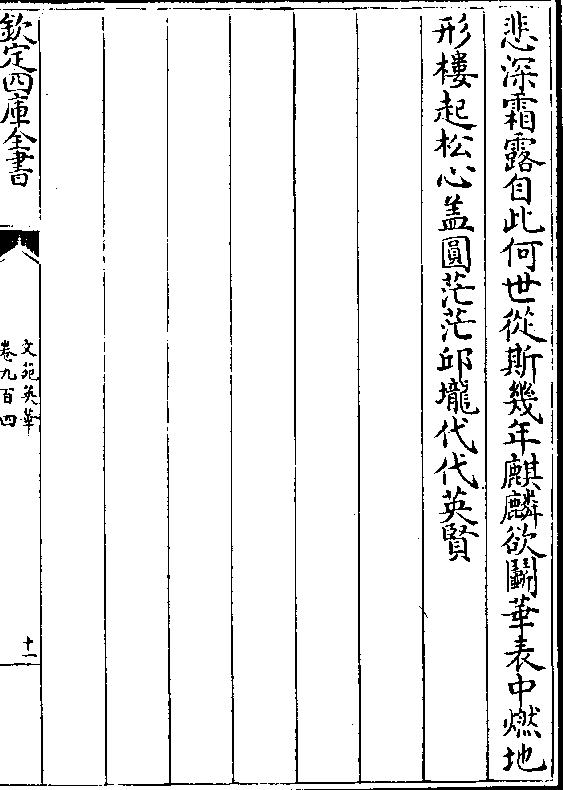 悲深霜露自此何世從斯幾年麒麟欲鬭華表中燃地
形樓起松心盖圓茫茫邱壠代代英賢
欽定四庫全書
文苑英華
卷九百四
十一